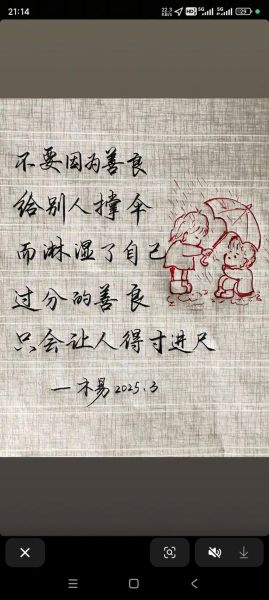 21:14
22.3
KB/s
HD
5G
5G
29
不要因为善良
给别人撑伞
而淋湿了自己
过分的善良
只会让人得寸进尺
2025.3